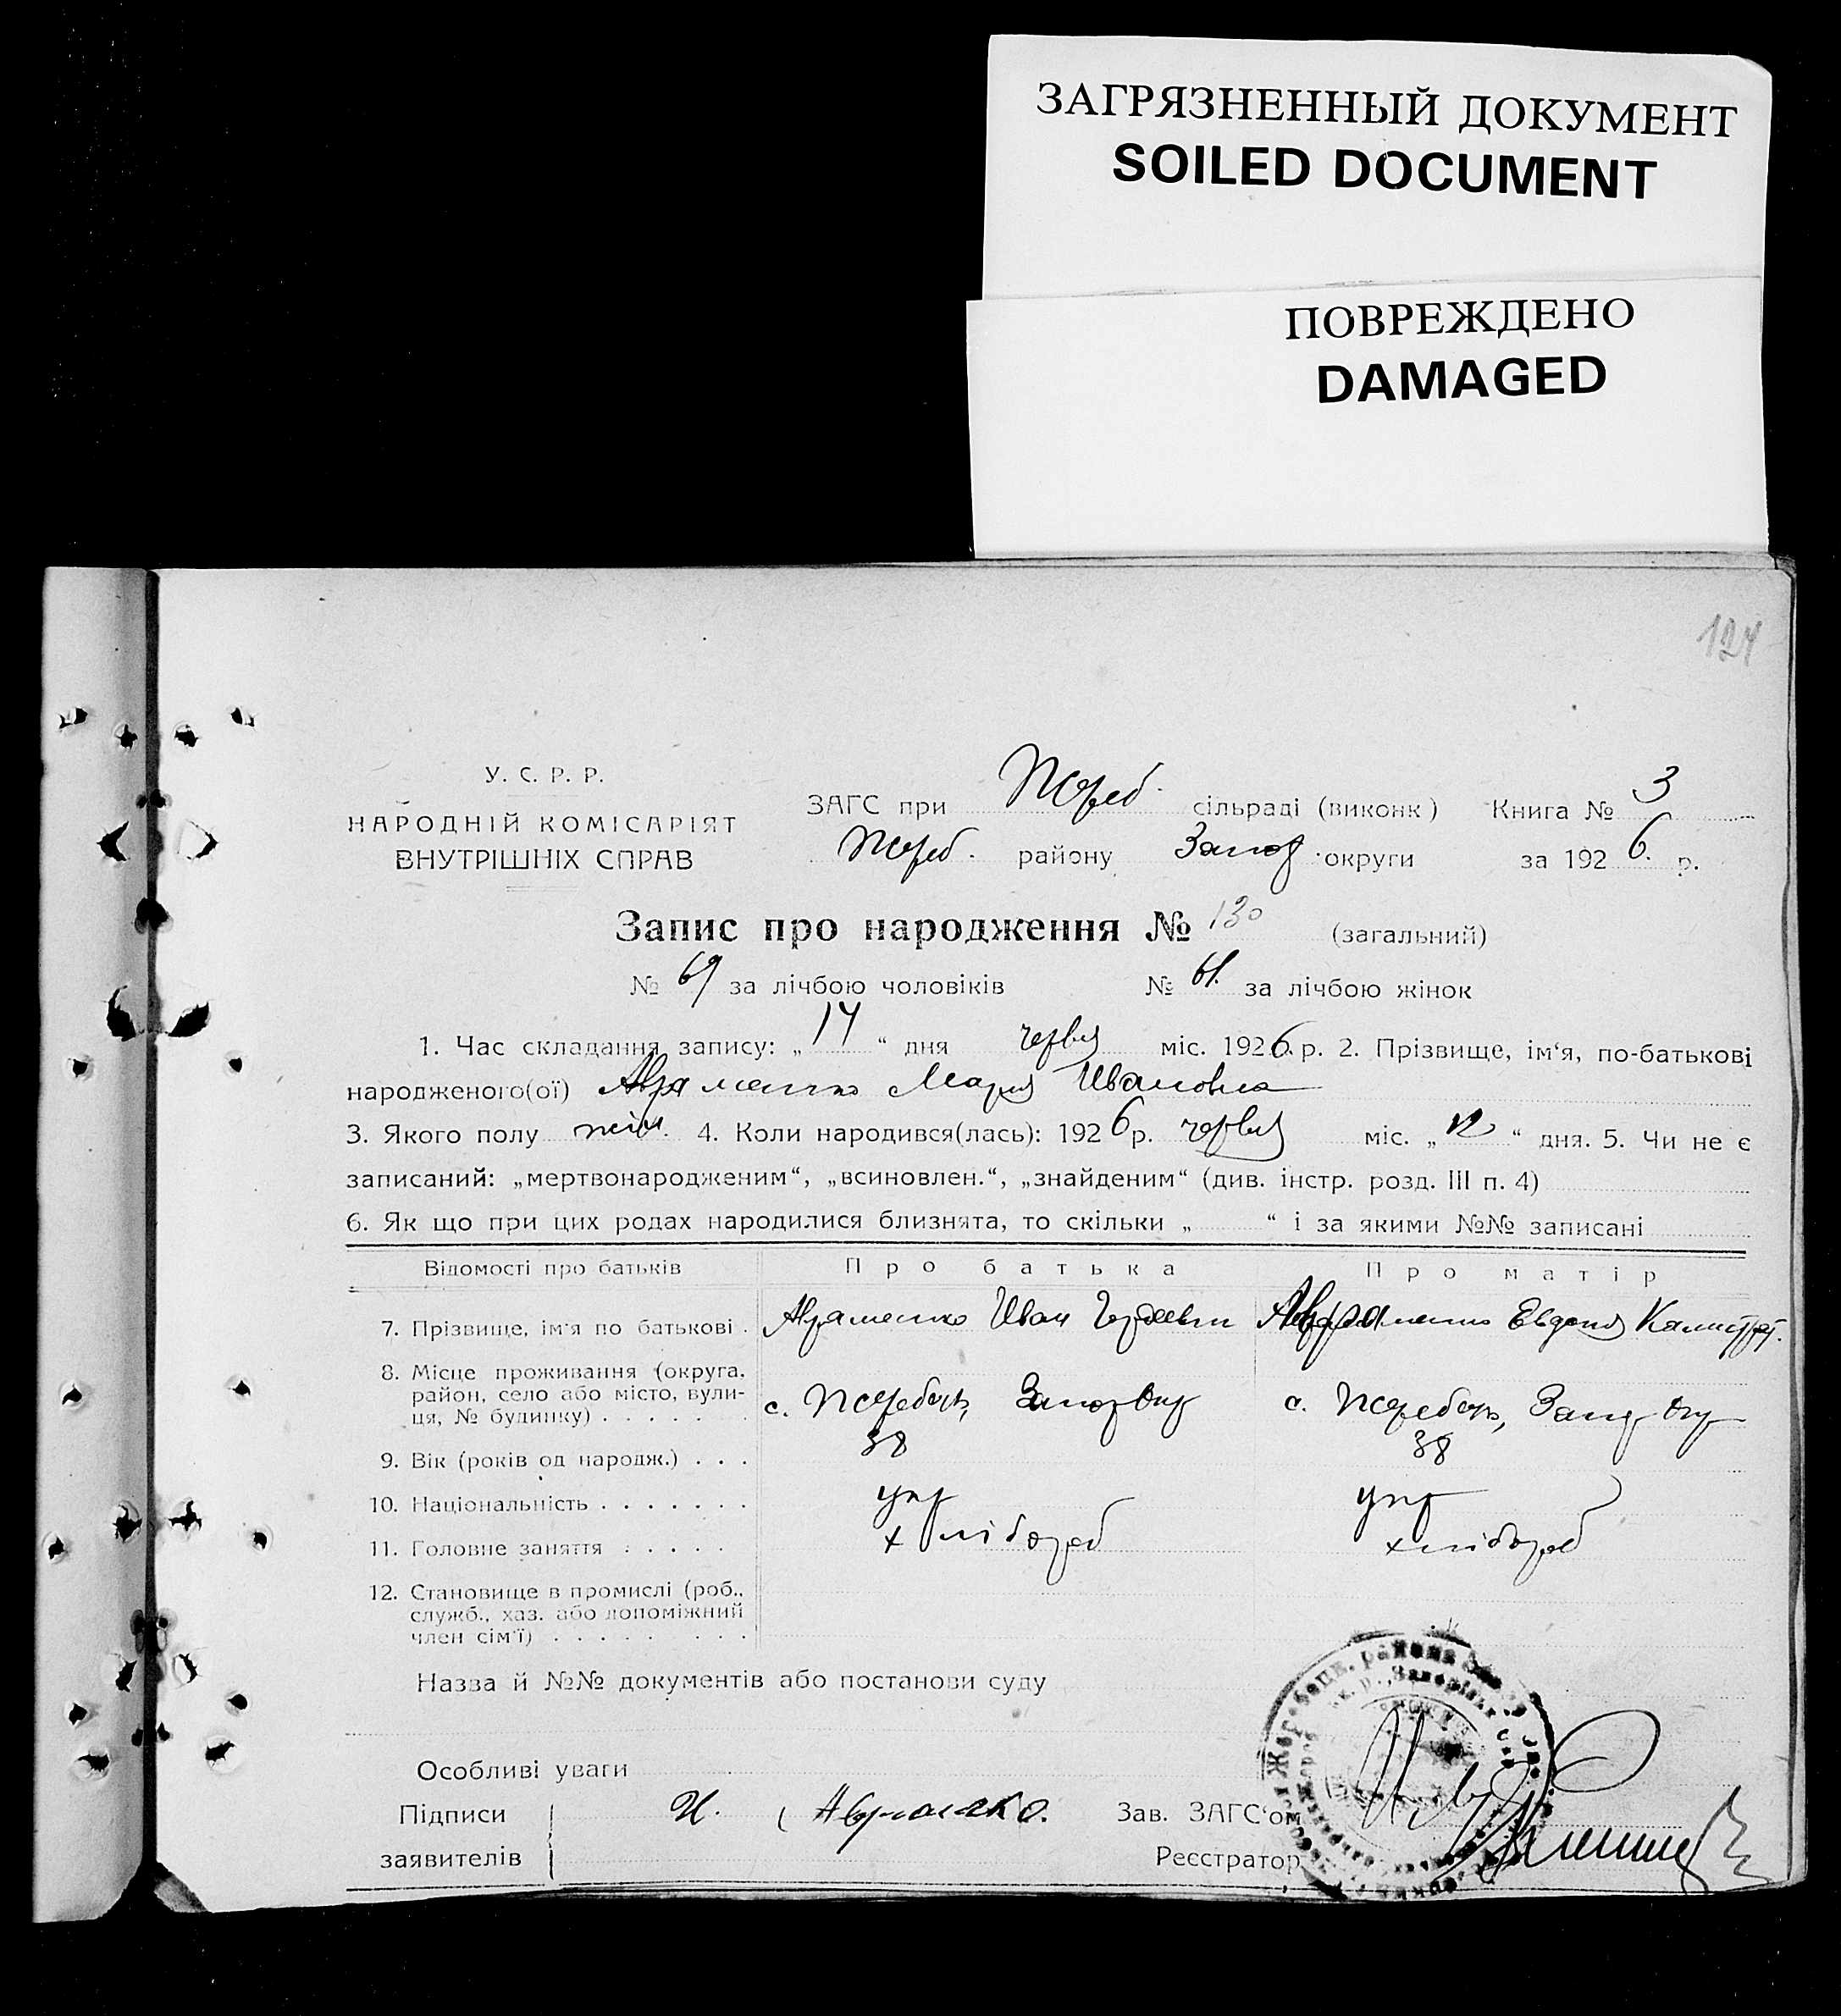 ЗАГРЯЗНЕННЫЙ ДОКУМЕНТ
SOILED DOCUMENT
ПОВРЕЖДЕНО
DAMAGED
124
У. С. Р. Р.
НАРОДНІЙ КОМІСАРІЯТ
ВНУТРІШНІХ СПРАВ
ЗАГС при Жереб. сільраді (виконк) Книга № 3
Жереб. району Запор округи за 1926. р.
Запис про народження № 130 (загальний)
№ 69 за лічбою чоловіків № 61. за лічбою жінок
1. Час складання запису: „14“ дня червня міс. 1926 р. 2. Прізвище, ім‘я, по-батькові
народженого(ої) Авраменко Мария Ивановна
3. Якого полу жін. 4. Коли народився(лась): 1926 р. червня міс. „12“ дня. 5. Чи не є
записаний: „мертвонародженим“, „всиновлен.“, „знайденим“ (див. інстр. розд. III п. 4)
6. Як що при цих родах народилися близнята, то скільки „ “ і за якими №№ записані
Відомості про батьків Про батька Про матір
7. Прізвище, ім‘я по батькові. Авраменко Иван Авраменко Евдокия
8. Місце проживання (округа,
район, село або місто, вули-
ця, № будинку) . . . . . . с. Жеребець, Запор Окр с. Жеребець, Запор Окр
9. Вік (років од народж.) . . . 38 38
10. Національність . . . . . . . укр укр
11. Головне заняття . . . . . хлібороб хлібороб
12. Становище в промислі (роб.,
служб., хаз. або допоміжний
член сім‘ї) . . . . . . . .
Назва й №№ документів або постанови суду
Особливі уваги
Підписи И. Авраменко. Зав. ЗАГС‘ом
заявителів Реєстратор